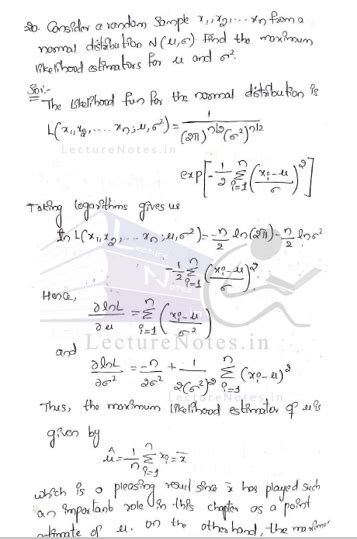 20. Consider a random sample x₁, x₂, ... xₙ from a
normal distribution N(μ,σ) find the maximum
likelihood estimators for μ and σ².
Sol:-
The likelihood fun for the normal distribution is
L(x₁,x₂,.... xₙ; μ,σ²) = 1 / (2π)^(n/2) (σ²)^(n/2)
LectureNotes.in
exp[-1/2 Σ_{i=1}^{n} ((xᵢ-μ)/σ)²]
Taking logarithms gives us
ln L(x₁,x₂, ... xₙ; μ,σ²) = -n/2 ln(2π) - n/2 ln σ²
-1/2 Σ_{i=1}^{n} ((xᵢ-μ)/σ)²
Hence,
∂lnL/∂μ = Σ_{i=1}^{n} ((xᵢ-μ)/σ²)
LectureNotes.in
and
∂lnL/∂σ² = -n/2σ² + 1/2(σ²)² Σ_{i=1}^{n} (xᵢ-μ)²
Thus, the maximum likelihood estimator of μ is
given by
μ̂ = 1/n Σ_{i=1}^{n} xᵢ = x̄
which is a pleasing result since x̄ has played such
an important role in this chapter as a point
estimate of μ. On the other hand, the maximum